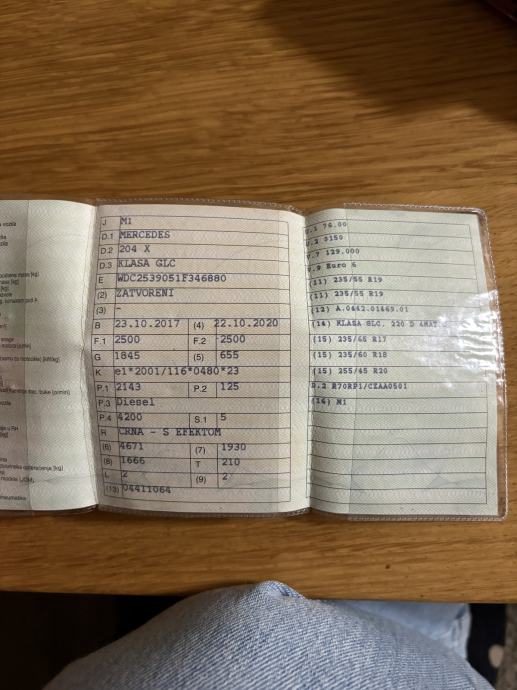 J M1
D.1 MERCEDES
D.2 204 X
D.3 KLASA GLC
E WDC2539051F346880
(2) ZATVORENI
(3) -
B 23.10.2017 (4) 22.10.2020
F.1 2500 F.2 2500
G 1845 (5) 655
K e1*2001/116*0480*23
P.1 2143 P.2 125
P.3 Diesel
P.4 4200 S.1 5
R CRNA - S EFEKTOM
(6) 4671 (7) 1930
(8) 1666 T 210
L 2 (9) 2
(13) 04411064
V.7 129.000
V.9 Euro 6
(11) 235/55 R19
(11) 235/55 R19
(12) A.0442.01469.01
(14) KLASA GLC, 220 D 4MATIC
(15) 235/65 R17
(15) 235/60 R18
(15) 255/45 R20
D.2 R70RP1/CZAA0501
(16) M1